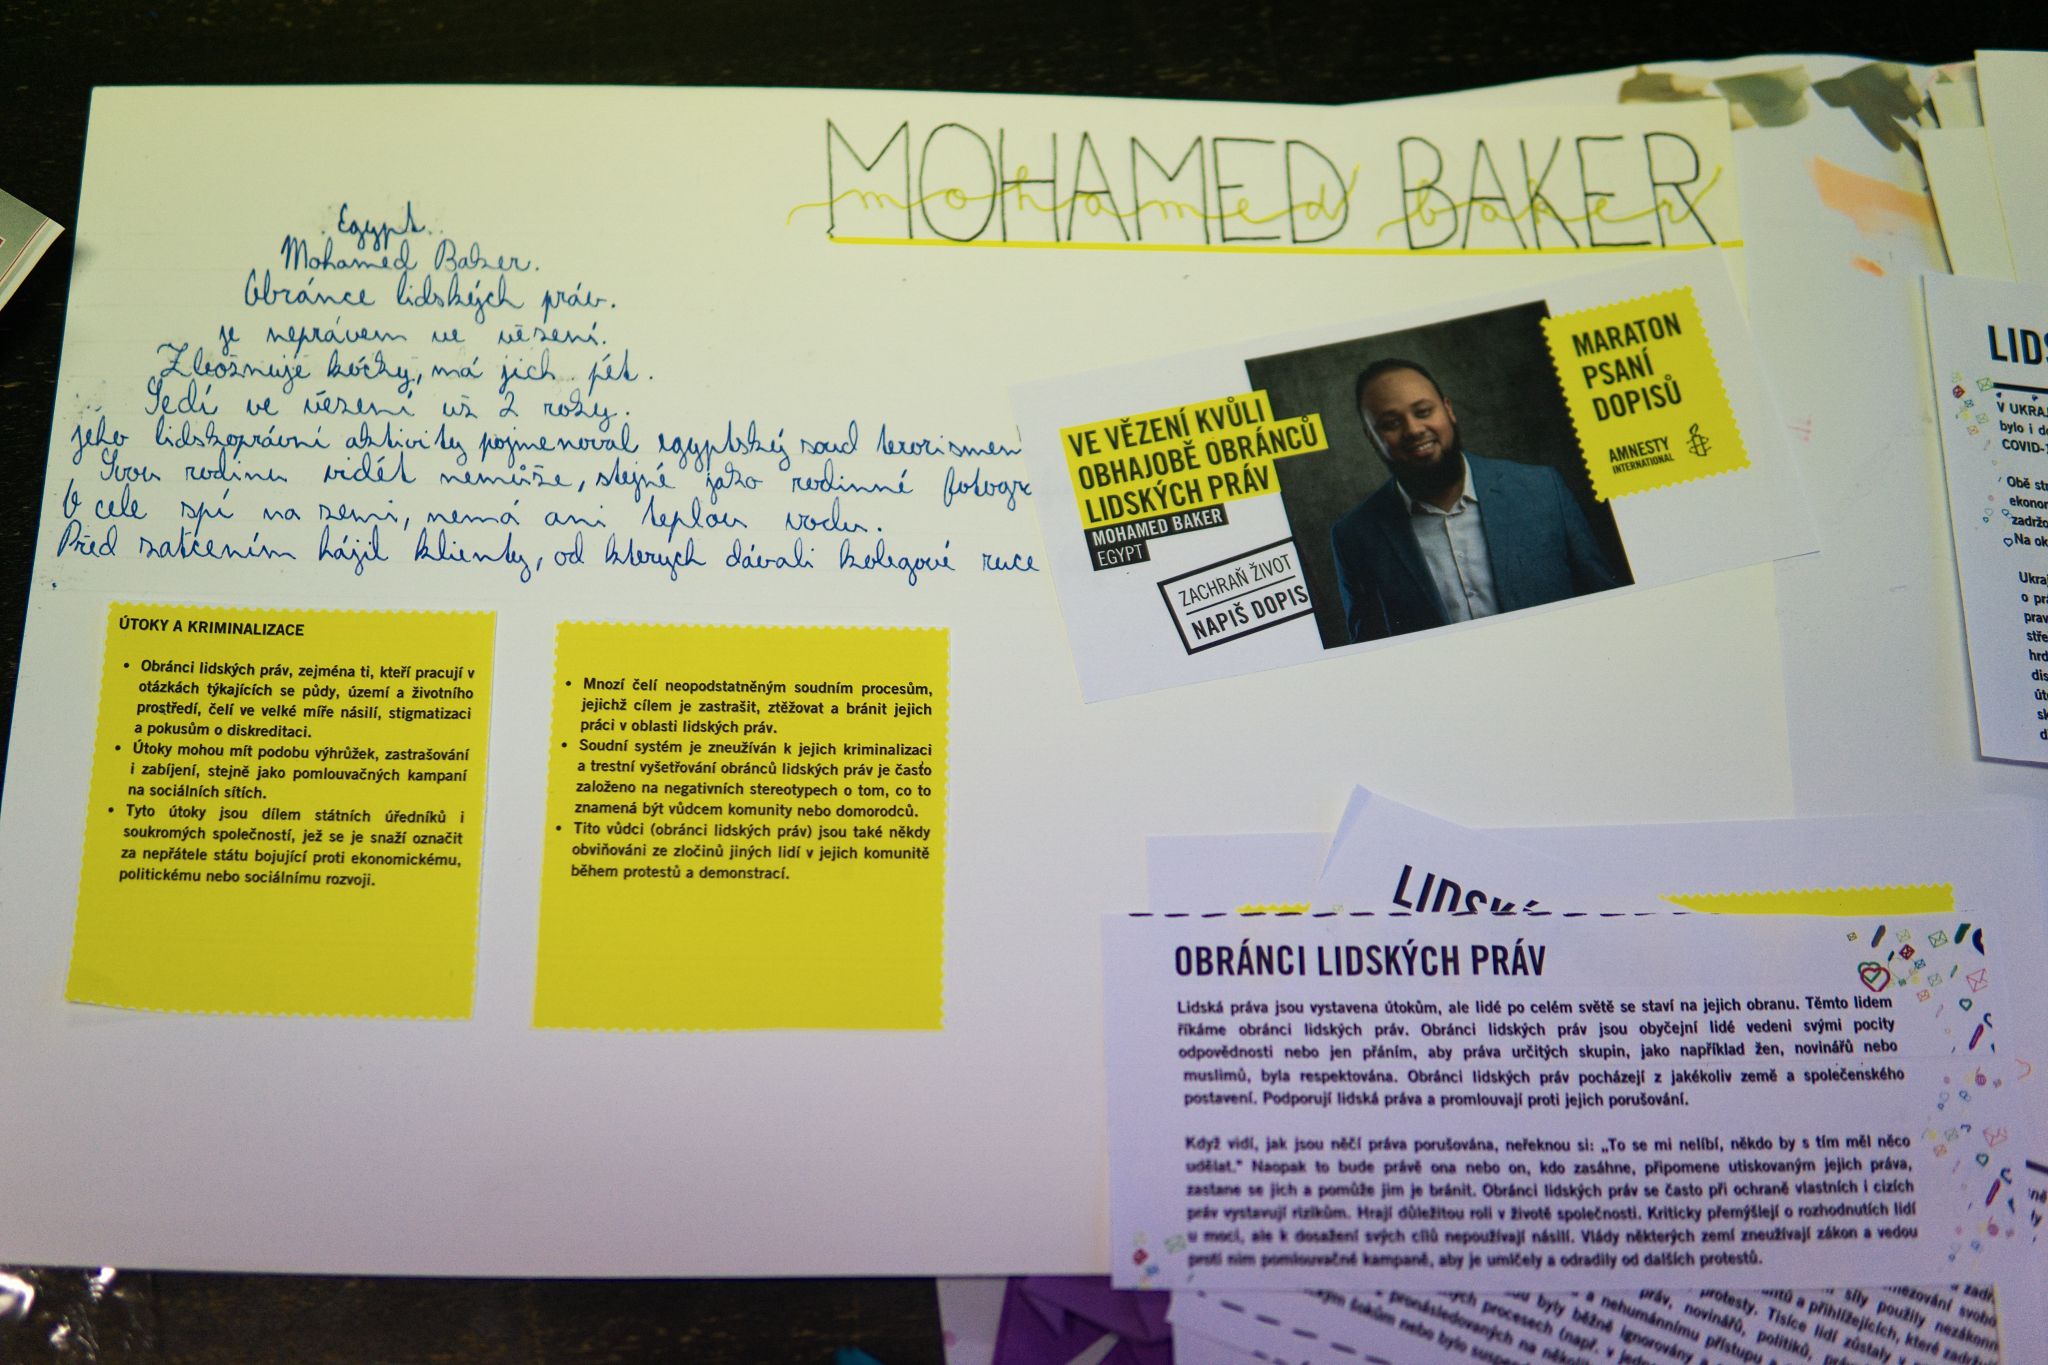 MOHAMED BAKER
mohamed baker
Egypt.
Mohamed Baker.
Obránce lidských práv.
je neprávem ve vězení.
Zbožňuje kočky, má jich pět.
Sedí ve vězení už 2 roky.
jeho lidskoprávní aktivity pojmenoval egyptský soud
Svou rodinu vidět nemůže, stejně jako rodinné
V cele spí na zemi, nemá ani teplou vodu.
Před zatčením hájil klienty, od kterých dávali kolegové ruce
VE VĚZENÍ KVŮLI
OBHAJOBĚ OBRÁNCŮ
LIDSKÝCH PRÁV
MOHAMED BAKER
EGYPT
ZACHRAŇ ŽIVOT
NAPIŠ DOPIS
MARATON
PSANÍ
DOPISŮ
AMNESTY
INTERNATIONAL
ÚTOKY A KRIMINALIZACE
• Obránci lidských práv, zejména ti, kteří pracují v
otázkách týkajících se půdy, území a životního
prostředí, čelí ve velké míře násilí, stigmatizaci
a pokusům o diskreditaci.
• Útoky mohou mít podobu výhrůžek, zastrašování
i zabíjení, stejně jako pomlouvačných kampaní
na sociálních sítích.
• Tyto útoky jsou dílem státních úředníků i
soukromých společností, jež se je snaží označit
za nepřátele státu bojující proti ekonomickému,
politickému nebo sociálnímu rozvoji.
• Mnozí čelí neopodstatněným soudním procesům,
jejichž cílem je zastrašit, ztěžovat a bránit jejich
práci v oblasti lidských práv.
• Soudní systém je zneužíván k jejich kriminalizaci
a trestní vyšetřování obránců lidských práv je často
založeno na negativních stereotypech o tom, co to
znamená být vůdcem komunity nebo domorodců.
• Tito vůdci (obránci lidských práv) jsou také někdy
obviňováni ze zločinů jiných lidí v jejich komunitě
během protestů a demonstrací.
V UKRAJ
bylo i do
COVID-1
Obě str
ekonor
zadržo
Na ok
Ukraj
o prá
prav
stře
hrd
dis
OBRÁNCI LIDSKÝCH PRÁV
Lidská práva jsou vystavena útokům, ale lidé po celém světě se staví na jejich obranu. Těmto lidem
říkáme obránci lidských práv. Obránci lidských práv jsou obyčejní lidé vedeni svými pocity
odpovědnosti nebo jen přáním, aby práva určitých skupin, jako například žen, novinářů nebo
muslimů, byla respektována. Obránci lidských práv pocházejí z jakékoliv země a společenského
postavení. Podporují lidská práva a promlouvají proti jejich porušování.
Když vidí, jak jsou něčí práva porušována, neřeknou si: „To se mi nelíbí, někdo by s tím měl něco
udělat." Naopak to bude právě ona nebo on, kdo zasáhne, připomene utiskovaným jejich práva,
zastane se jich a pomůže jim je bránit. Obránci lidských práv se často při ochraně vlastních i cizích
práv vystavují rizikům. Hrají důležitou roli v životě společnosti. Kriticky přemýšlejí o rozhodnutích lidí
u moci, ale k dosažení svých cílů nepoužívají násilí. Vlády některých zemí zneužívají zákon a vedou
proti nim pomlouvačné kampaně, aby je umlčely a odradily od dalších protestů.